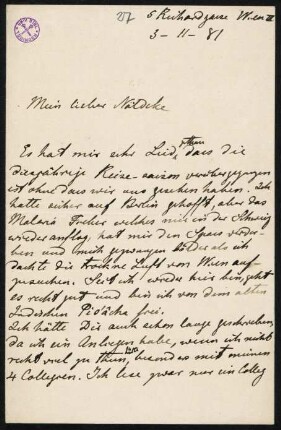 5 Reichardgasse Wien III
3-11-81
Mein lieber Nöldeke
Es hat mir sehr Leid gethan dass die
diesjährige Reise-saison vorübergegangen
ist ohne dass wir uns gesehen haben. Ich
hatte sicher auf Berlin gehofft, aber das
Malaria Fieber welches mir in der Schweiz
wieder anflog, hat mir den Spass verdor-
ben und mich gezwungen als ich
dachte die trockne Luft von Wien auf-
zusuchen. Seit ich wieder hier bin, geht
es recht gut und bin ich von dem alten
Indischen frei.
Ich hätte Dir auch schon lange geschrieben,
da ich ein Anliegen habe, wenn ich nicht
recht viel zu thun, besonders mit meinen
4 Collegien. Ich lese zwar nur ein Colleg